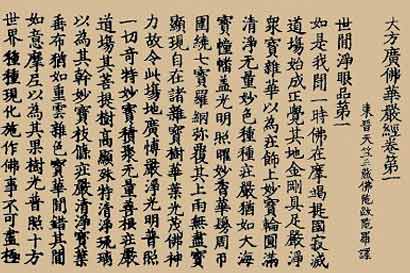 大方廣佛華嚴經卷第一
東晉天竺三藏佛陀跋陀羅譯
世間淨眼品第一
如是我聞一時佛在摩竭提國寂滅
道場始成正覺其地金剛具足嚴淨
衆寶雜華以為莊飾上妙寶輪圓滿
清淨無量妙色種種莊嚴猶如大海
寶幢幡蓋光明照曜妙香華鬘周帀
圍繞七寶羅網彌覆其上雨無盡寶
顯現自在諸雜寶樹華葉光茂佛神
力故令此場地廣博嚴淨光明普照
一切奇特妙寶積聚無量善根莊嚴
道場其菩提樹高顯殊特清淨琉璃
以為其幹妙寶枝條莊嚴清淨寶葉
垂布猶如重雲雜色寶華間錯其間
如意摩尼以為其果樹光普照十方
世界種種現化施作佛事不可盡極